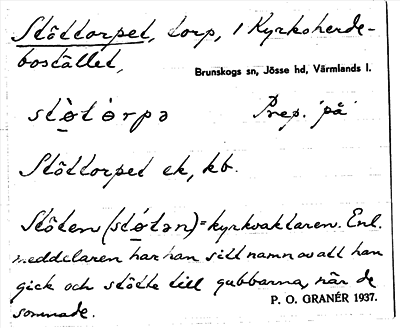 Stöttorpet, torp, i Kyrkoherde-
bostället,
Brunskogs sn, Jösse hd, Värmlands l.
stø̀tòrpə Prep. 'på'
Stöttorpet ek, kb.
Stöten (stǿtən) = kyrkvaktaren. Enl.
meddelaren har han sitt namn av att han
gick och stötte till gubbarna, när de
somnade.
P. O. GRANÉR 1937.